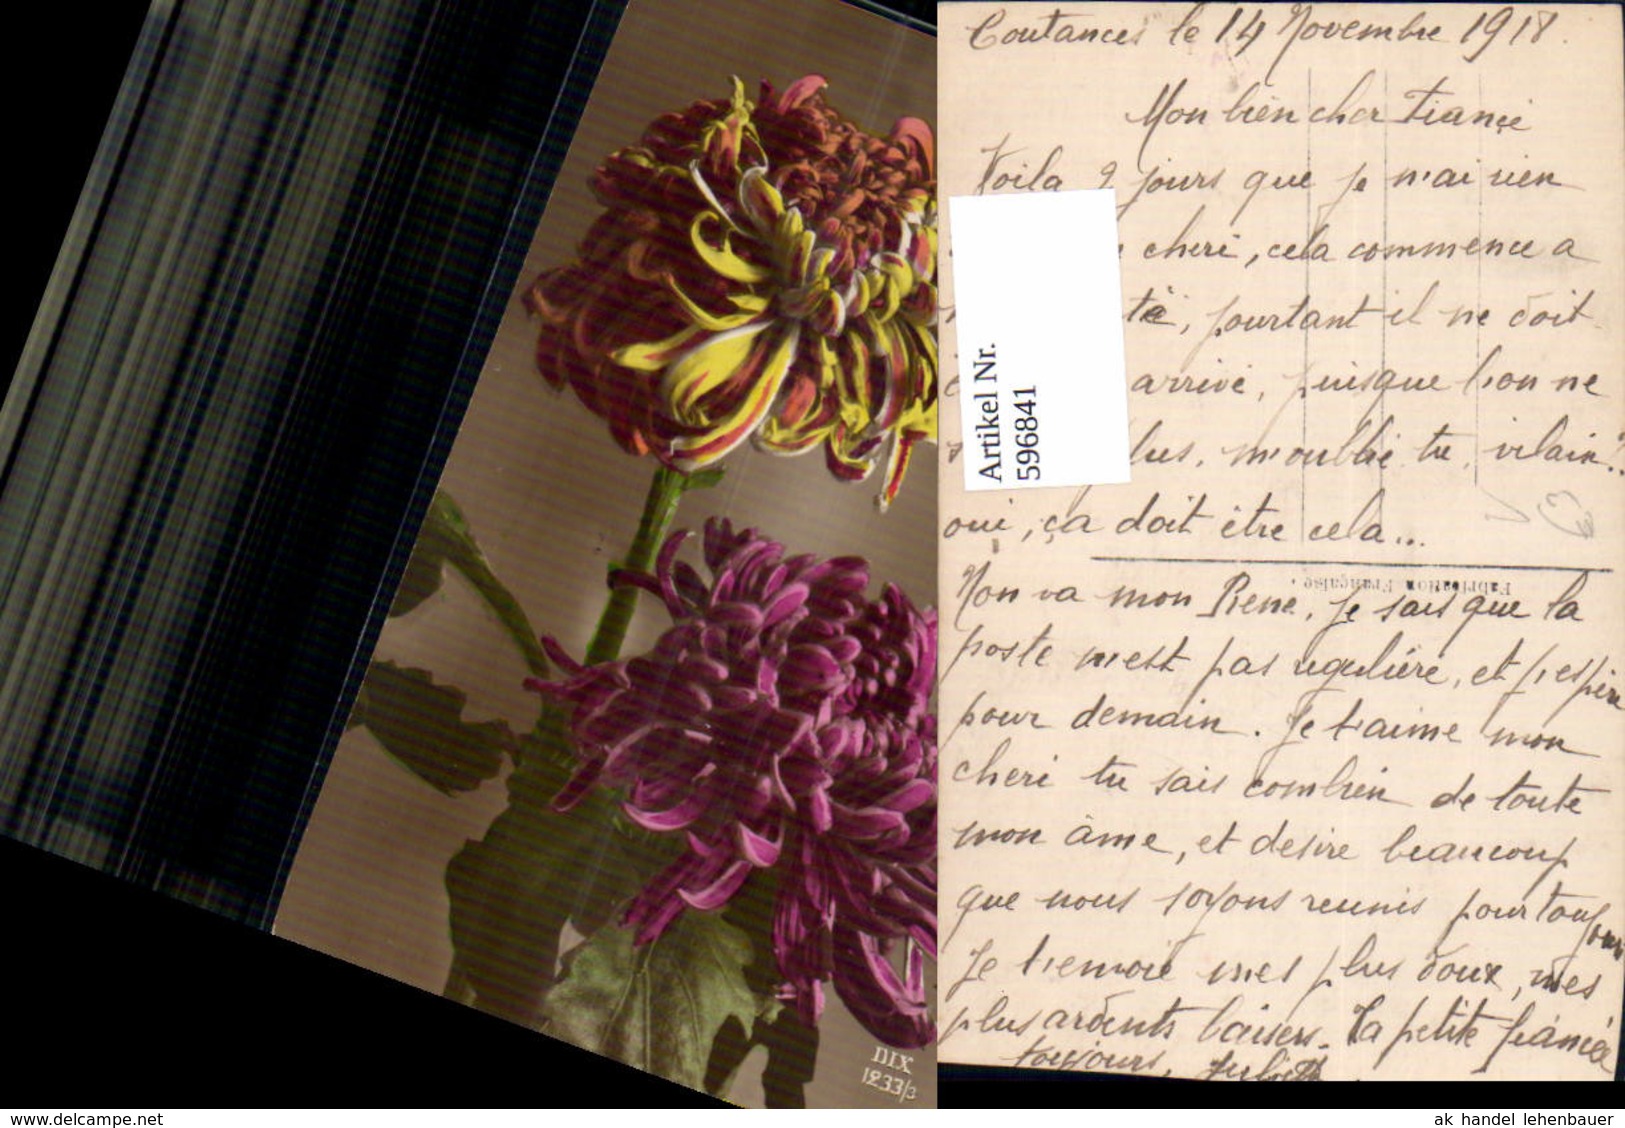 Coutances le 14 Novembre 1918.
Mon bien cher Fiancé
Voila 2 jours que je n'ai rien
cheri, cela commence a
pourtant il ne doit
arrivé, puisque l'on ne
m'oublie tu, vilain?
oui, ça doit être cela...
Non va mon Rene. Je sais que la
poste n'est pas reguliére, et j'espère
pour demain. Je t'aime mon
cheri tu sais combien de toute
mon âme, et desire beaucoup
que nous soyons reunis pour toujours
Je t'envoie mes plus doux, mes
plus ardents baisers. Ta petite fiancée
toujours, Juliette
Artikel Nr.
596841
Fabrication Française.
DIX
1233/3
www.delcampe.net
ak_handel_lehenbauer